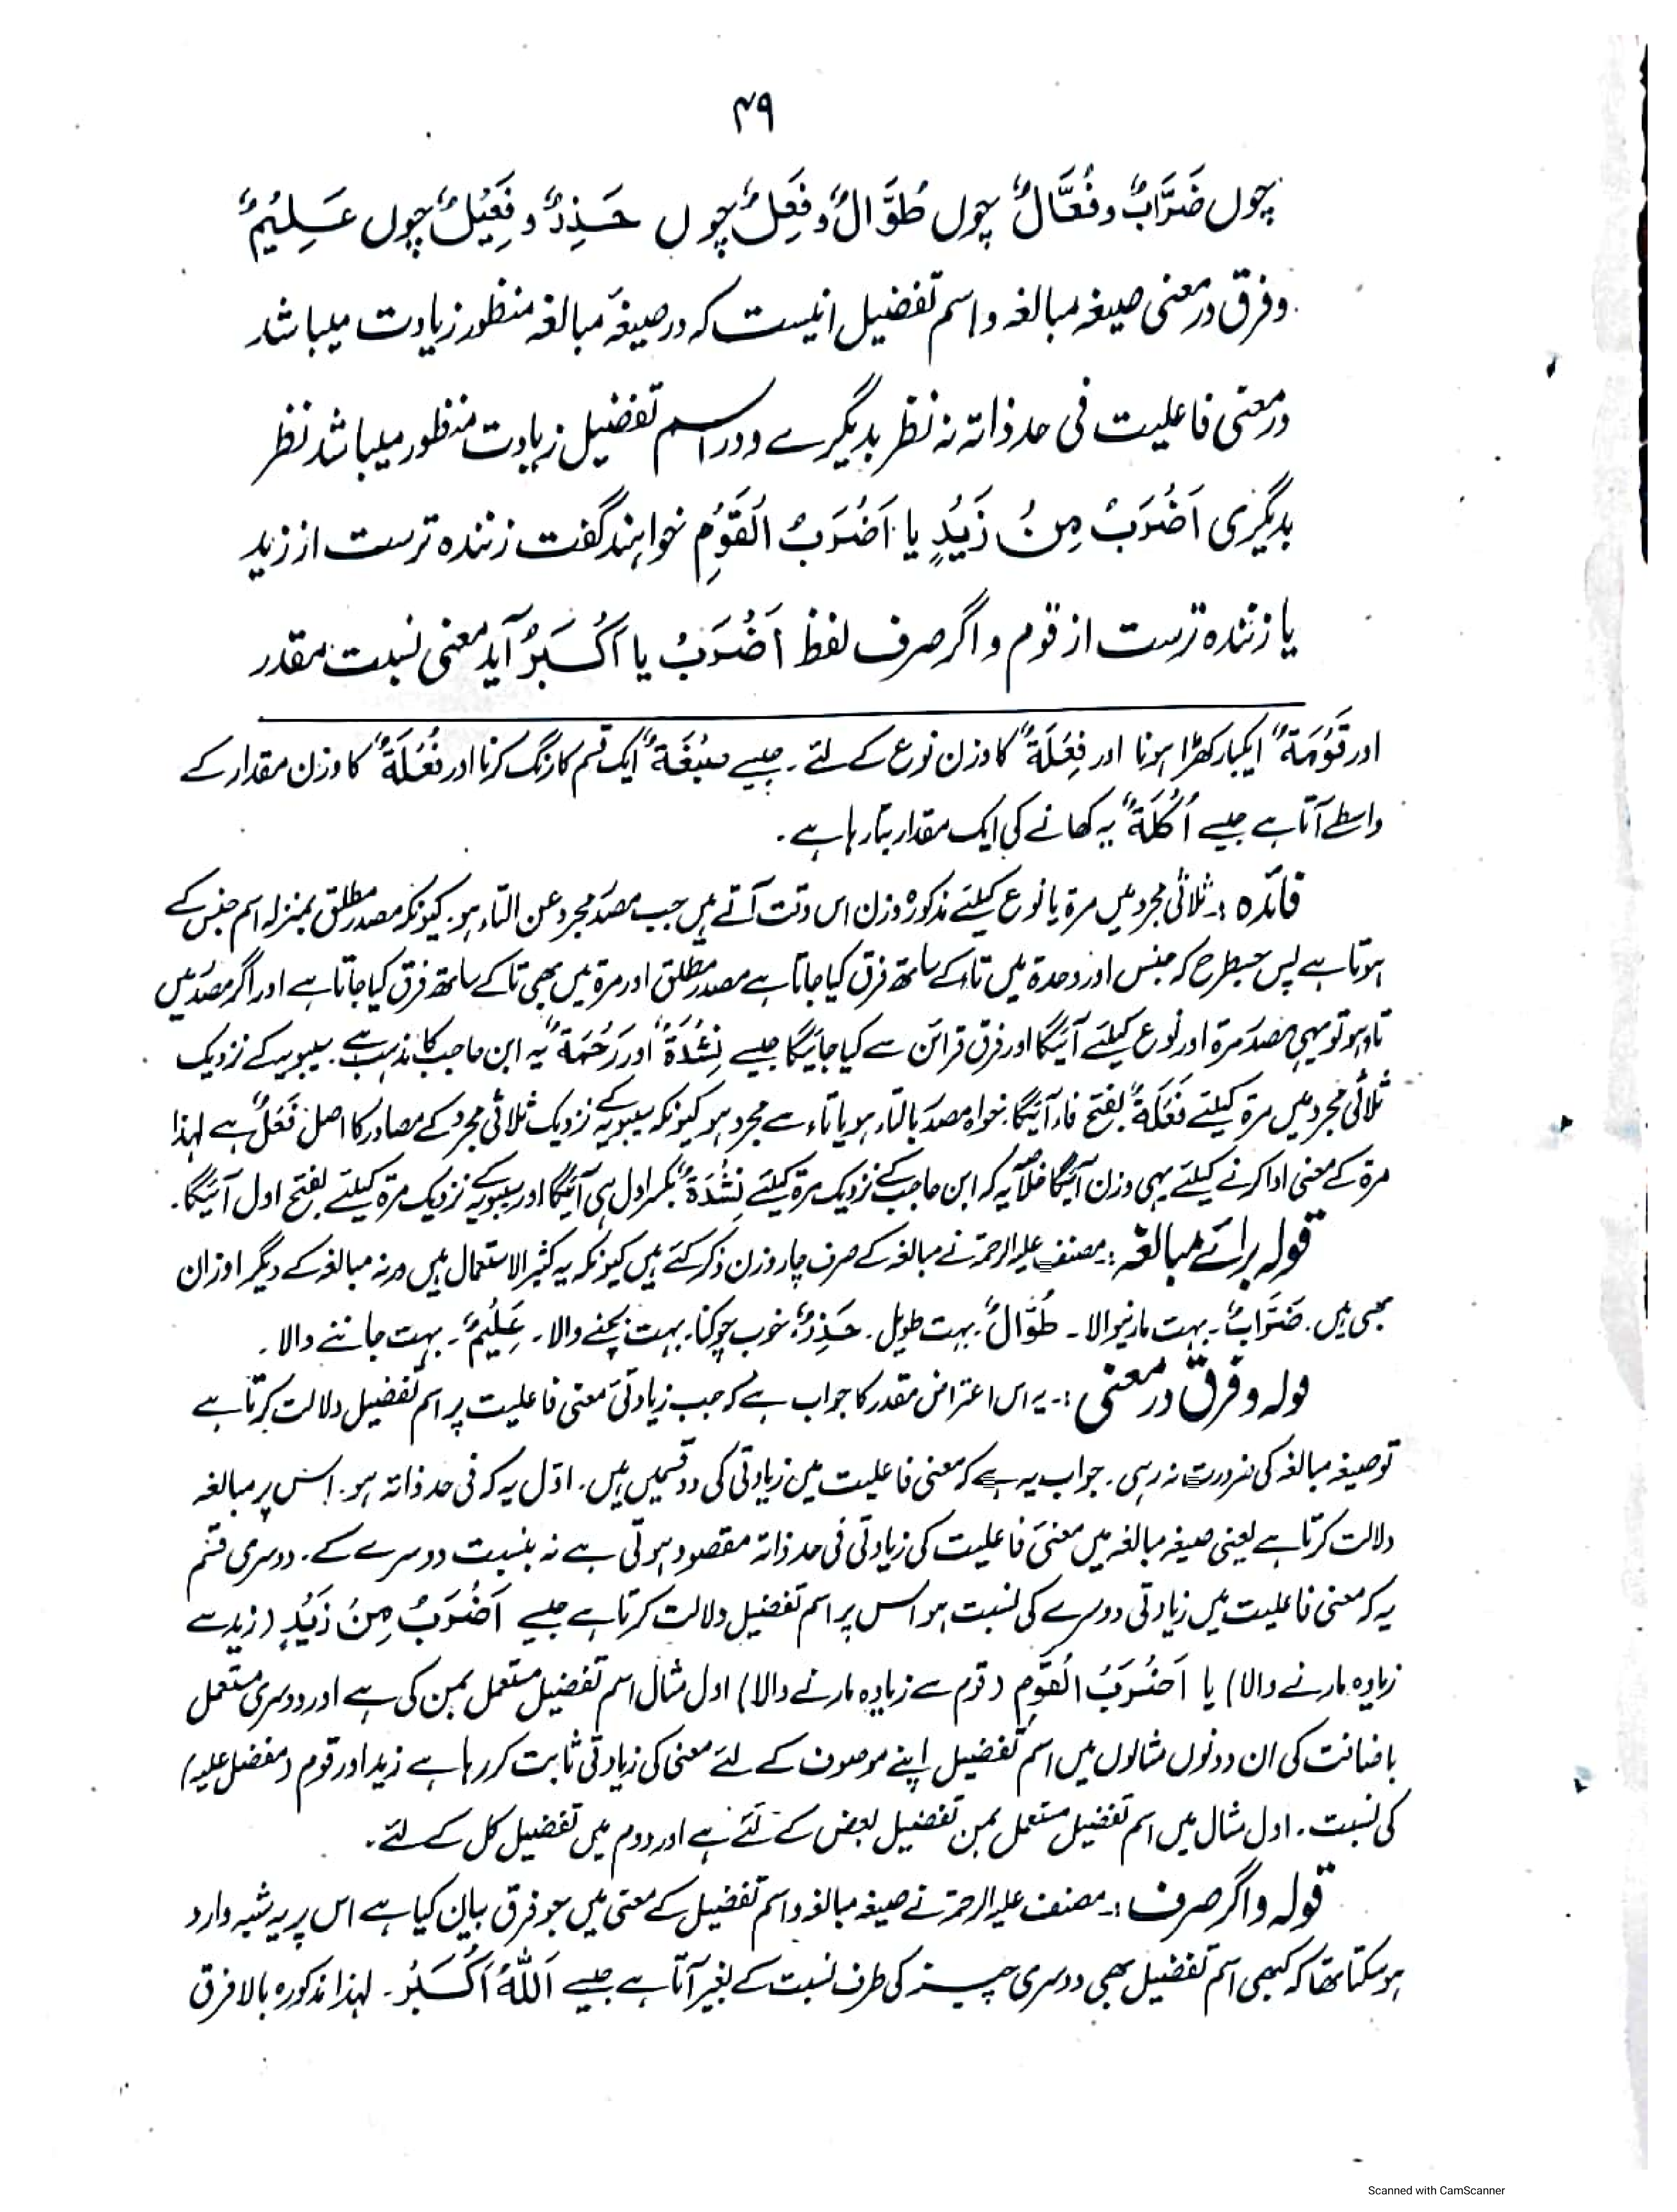 ۴۹
چوں ضَرَّابٌ و فُعَّالٌ چوں طُوَّالٌ و فَعِلٌ چوں حَذِرٌ و فَعِیْلٌ چوں عَلِیْمٌ
و فرق در معنی صیغہ مبالغہ و اسم تفضیل اینست کہ در صیغۂ مبالغہ منظور زیادت میباشد
در معنی فاعلیت فی حد ذاتہ نہ نظر بدیگرے و در اسم تفضیل زیادت منظور میباشد نظر
بدیگری اَضْرَبُ مِنْ زَیْدٍ یا اَضْرَبُ الْقَوْمِ خواہند گفت زنندہ ترست از زید
یا زنندہ ترست از قوم و اگر صرف لفظ اَضْرَبُ یا اَکْبَرُ آید معنی نسبت مقدر
اور قَوْمَةٌ ایکبار کھڑا ہونا اور فِعْلَةٌ کا وزن نوع کے لئے ۔ جیسے صِبْغَةٌ ایک قسم کا رنگ کرنا اور فُعْلَةٌ کا وزن مقدار کے
واسطے آتا ہے جیسے اُکْلَةٌ یہ کھانے کی ایک مقدار بتا رہا ہے ۔
فائدہ :۔ ثلاثی مجرد میں مرۃ یا نوع کیلئے مذکورہ وزن اس وقت آتے ہیں جب مصدر مجرد عن التاء ہو ۔ کیونکہ مصدر مطلق بمنزلہ اسم جنس کے
ہوتا ہے پس جسطرح کہ جنس اور وحدۃ میں تاء کے ساتھ فرق کیا جاتا ہے مصدر مطلق اور مرۃ میں بھی تا کے ساتھ فرق کیا جاتا ہے اور اگر مصدر میں
تاء ہو تو یہی مصدر مرۃ اور نوع کیلئے آئیگا اور فرق قرائن سے کیا جائیگا جیسے نِشْدَةٌ اور رَحْمَةٌ یہ ابن حاجب کا مذہب ہے ۔ سیبویہ کے نزدیک
ثلاثی مجرد میں مرۃ کیلئے فَعْلَةٌ بفتح فاء آئیگا ۔ خواہ مصدر بالتاء ہو یا تاء سے مجرد ہو کیونکہ سیبویہ کے نزدیک ثلاثی مجرد کے مصادر کا اصل فَعْلٌ ہے لہذا
مرۃ کے معنی ادا کرنے کیلئے یہی وزن آئیگا خلاصہ یہ کہ ابن حاجب کے نزدیک مرۃ کیلئے نِشْدَةٌ بکسر اول ہی آئیگا اور سیبویہ کے نزدیک مرۃ کیلئے بفتح اول آئیگا ۔
قولہ برائے مبالغہ :۔ مصنف علیہ الرحمۃ نے مبالغہ کے صرف چار وزن ذکر کئے ہیں کیونکہ یہ کثیر الاستعمال ہیں ورنہ مبالغہ کے دیگر اوزان
بھی ہیں ۔ ضَرَّابٌ ۔ بہت مارنیوالا ۔ طُوَّالٌ ۔ بہت طویل ۔ حَذِرٌ ؛ خوب چوکنا ۔ بہت بچنے والا ۔ عَلِیْمٌ ۔ بہت جاننے والا ۔
قولہ و فرق در معنی :۔ یہ اس اعتراض مقدر کا جواب ہے کہ جب زیادتی معنی فاعلیت پر اسم تفضیل دلالت کرتا ہے
تو صیغہ مبالغہ کی ضرورت نہ رہی ۔ جواب یہ ہے کہ معنی فاعلیت میں زیادتی کی دو قسمیں ہیں ۔ اوّل یہ کہ فی حد ذاتہ ہو ۔ اس پر مبالغہ
دلالت کرتا ہے یعنی صیغہ مبالغہ میں معنیٔ فاعلیت کی زیادتی فی حد ذاتہ مقصود ہوتی ہے نہ بنسبت دوسرے کے ۔ دوسری قسم
یہ کہ معنی فاعلیت میں زیادتی دوسرے کی نسبت ہو اس پر اسم تفضیل دلالت کرتا ہے جیسے اَضْرَبُ مِنْ زَیْدٍ (زید سے
زیادہ مارنے والا) یا اَضْرَبُ الْقَوْمِ (قوم سے زیادہ مارنے والا) اول مثال اسم تفضیل مستعمل بمن کی ہے اور دوسری مستعمل
باضافت کی ان دونوں مثالوں میں اسم تفضیل اپنے موصوف کے لئے معنی کی زیادتی ثابت کر رہا ہے زید اور قوم (مفضل علیہ)
کی نسبت ۔ اول مثال میں اسم تفضیل مستعمل بمن تفضیل بعض کے لئے ہے اور دوم میں تفضیل کل کے لئے ۔
قولہ و اگر صرف :۔ مصنف علیہ الرحمۃ نے صیغہ مبالغہ و اسم تفضیل کے معنی میں جو فرق بیان کیا ہے اس پر یہ شبہ وارد
ہو سکتا تھا کہ کبھی اسم تفضیل بھی دوسری چیز کی طرف نسبت کے بغیر آتا ہے جیسے اَللّٰہُ اَکْبَرُ ۔ لہذا مذکورہ بالا فرق
Scanned with CamScanner